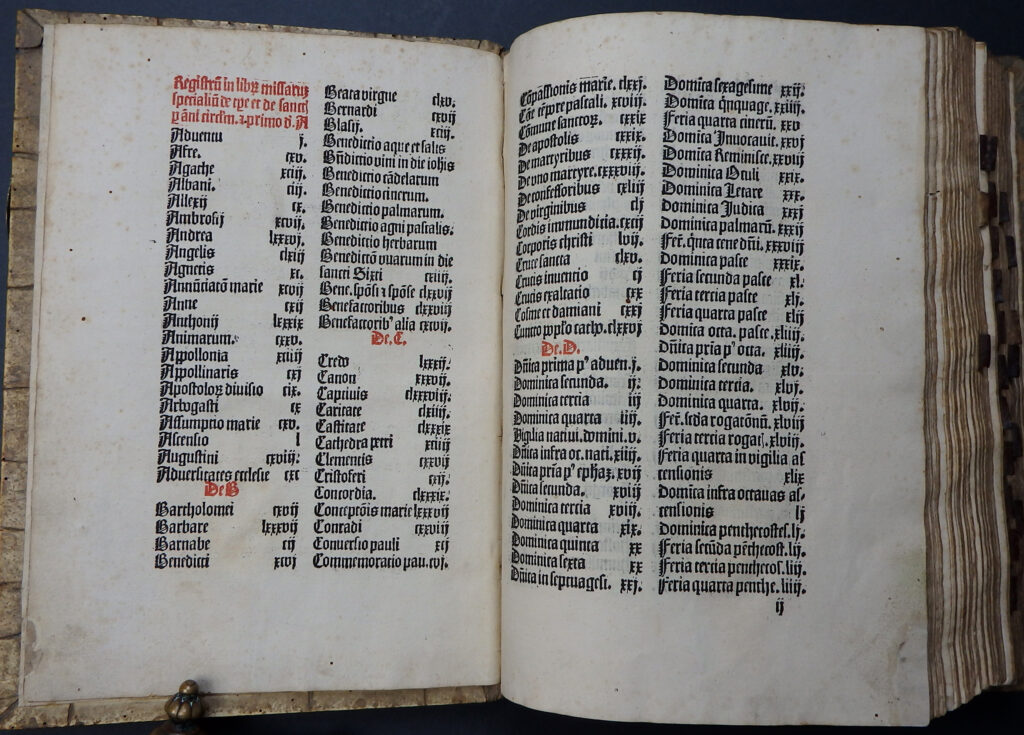 Registrũ in libꝝ missarũ
specialiũ de tꝑe et de sanctꝭ
ꝑ anni circlm. ⁊ primo d. A
Aduentu j.
Afre. cxv.
Agathe xciij.
Albani. ciij.
Allexij cx.
Ambrosij xcviij.
Andrea lxxxvj.
Angelis clxiij
Agnetis xc.
Annũciatõ marie xcvij
Anne cxij
Anthonij lxxxix
Animarum. cxxv.
Appollonia xciiij
Appollinaris cxj
Apostoloꝝ diuisio cix.
Arbogasti cx
Assumptio marie cxv.
Ascensio l
Augustini cxviij.
Aduersitates ecclesie cxc
De B
Bartholomei cxvij
Barbare lxxxvij
Barnabe cij
Benedicti xcvj
Beata virgue clxv.
Bernardi cxvij
Blasij. xciij.
Benedictio aque et salis
Bñdictio vini in die iohis
Benedictio cãdelarum
Benedictio cinerum.
Benedictio palmarum.
Benedictio agni paschalis.
Benedictio herbarum
Benedictõ vuarum in die
sancti Sixti cxiij.
Bene. spõsi ⁊ spõse clxxvij
Benefactoribus clxxviij
Benefactorib⁹ alia cxcvij.
De. C.
Credo lxxxij.
Canon xxxvij.
Captiuis clxxxviij.
Caritate clxiiij.
Castitate clxxxix
Cathedra petri xciiij
Clementis cxxvij
Cristoferi cxij.
Concordia. clxxxix.
Conceptõis marie lxxxvij
Conradi cxxviij
Conuersio pauli xcij
Commemoratio pau. cvj.
Cõpassionis marie. clxxj.
Cõe tẽpꝛe pascali. xcviij.
Cõmune sanctoꝝ. cxxix
De apostolis cxxix.
De martyribus cxxxij.
De vno martyre. cxxxviij
De confessoribus cxliij
De virginibus clj
Cordis immunditia. cxcij
Corporis christi lvij.
Cruce sancta clxv.
Crucis inuentio cj
Crucis exaltatio cxx
Cosme et damiani cxxj
Cuncto pplo cathͦ. clxxvj
De. D.
Dñica prima p⁹ aduen. j.
Dominica secunda. ij.
Dominica tercia iij
Dominica quarta iiij.
Vigilia natiui. domini. v.
Dñica infra oc. nati. xiij.
Dñica pria p⁹ ephaꝫ. xvij
Dñica secunda. xviij
Dominica tercia xviij.
Dominica quarta xix.
Dominica quinta xx
Dominica sexta xx
Dñica in septuagesi. xxj.
Domĩca sexagesime xxij.
Domĩca qnquage. xxiij.
Feria quarta cinerũ. xxv
Domĩca Inuocauit. xxvj
Domĩca Reminisce. xxvij
Dominica Oculi xxix.
Dominica Letare xxx.
Dominica Judica xxxj
Dominica palmarũ. xxxij
Feř. qnta cene dñi. xxxviij
Dominica pasce xxxix.
Feria secunda pasce xl.
Feria tercia pasce xlj.
Feria quarta pasce xlij
Domĩca octa. pasce. xliij.
Dñica pria p⁹ octa. xliiij.
Dominica secunda xlv.
Dominica tercia. xlvj.
Dominica quarta. xlvij.
Feř. scda rogatonũ. xlvij.
Feria tercia rogat. xlviij.
Feria quarta in vigilia as
censionis xlix
Domĩca infra octauas as
censionis lj
Dominica penthecostes. lj.
Feria secũda pẽthecost. lij.
Feria tercia penthecos. liij.
Feria quarta penthe. liiij.
ij